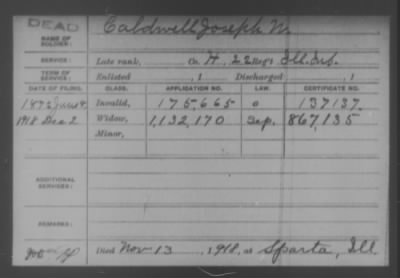 DEAD
NAME OF SOLDIER: Caldwell Joseph M.
SERVICE: Late rank, Co. H, 22 Reg't Ill. Inf.
TERM OF SERVICE: Enlisted , 1 Discharged , 1
DATE OF FILING. CLASS. APPLICATION NO. LAW. CERTIFICATE NO.
1872 June 8 Invalid, 175,665 o 137137.
1918 Dec 2 Widow, 1,132,170 Sep. 867,135
Minor,
ADDITIONAL SERVICES:
REMARKS:
Died Nov 13, 1918, at Sparta, Ill